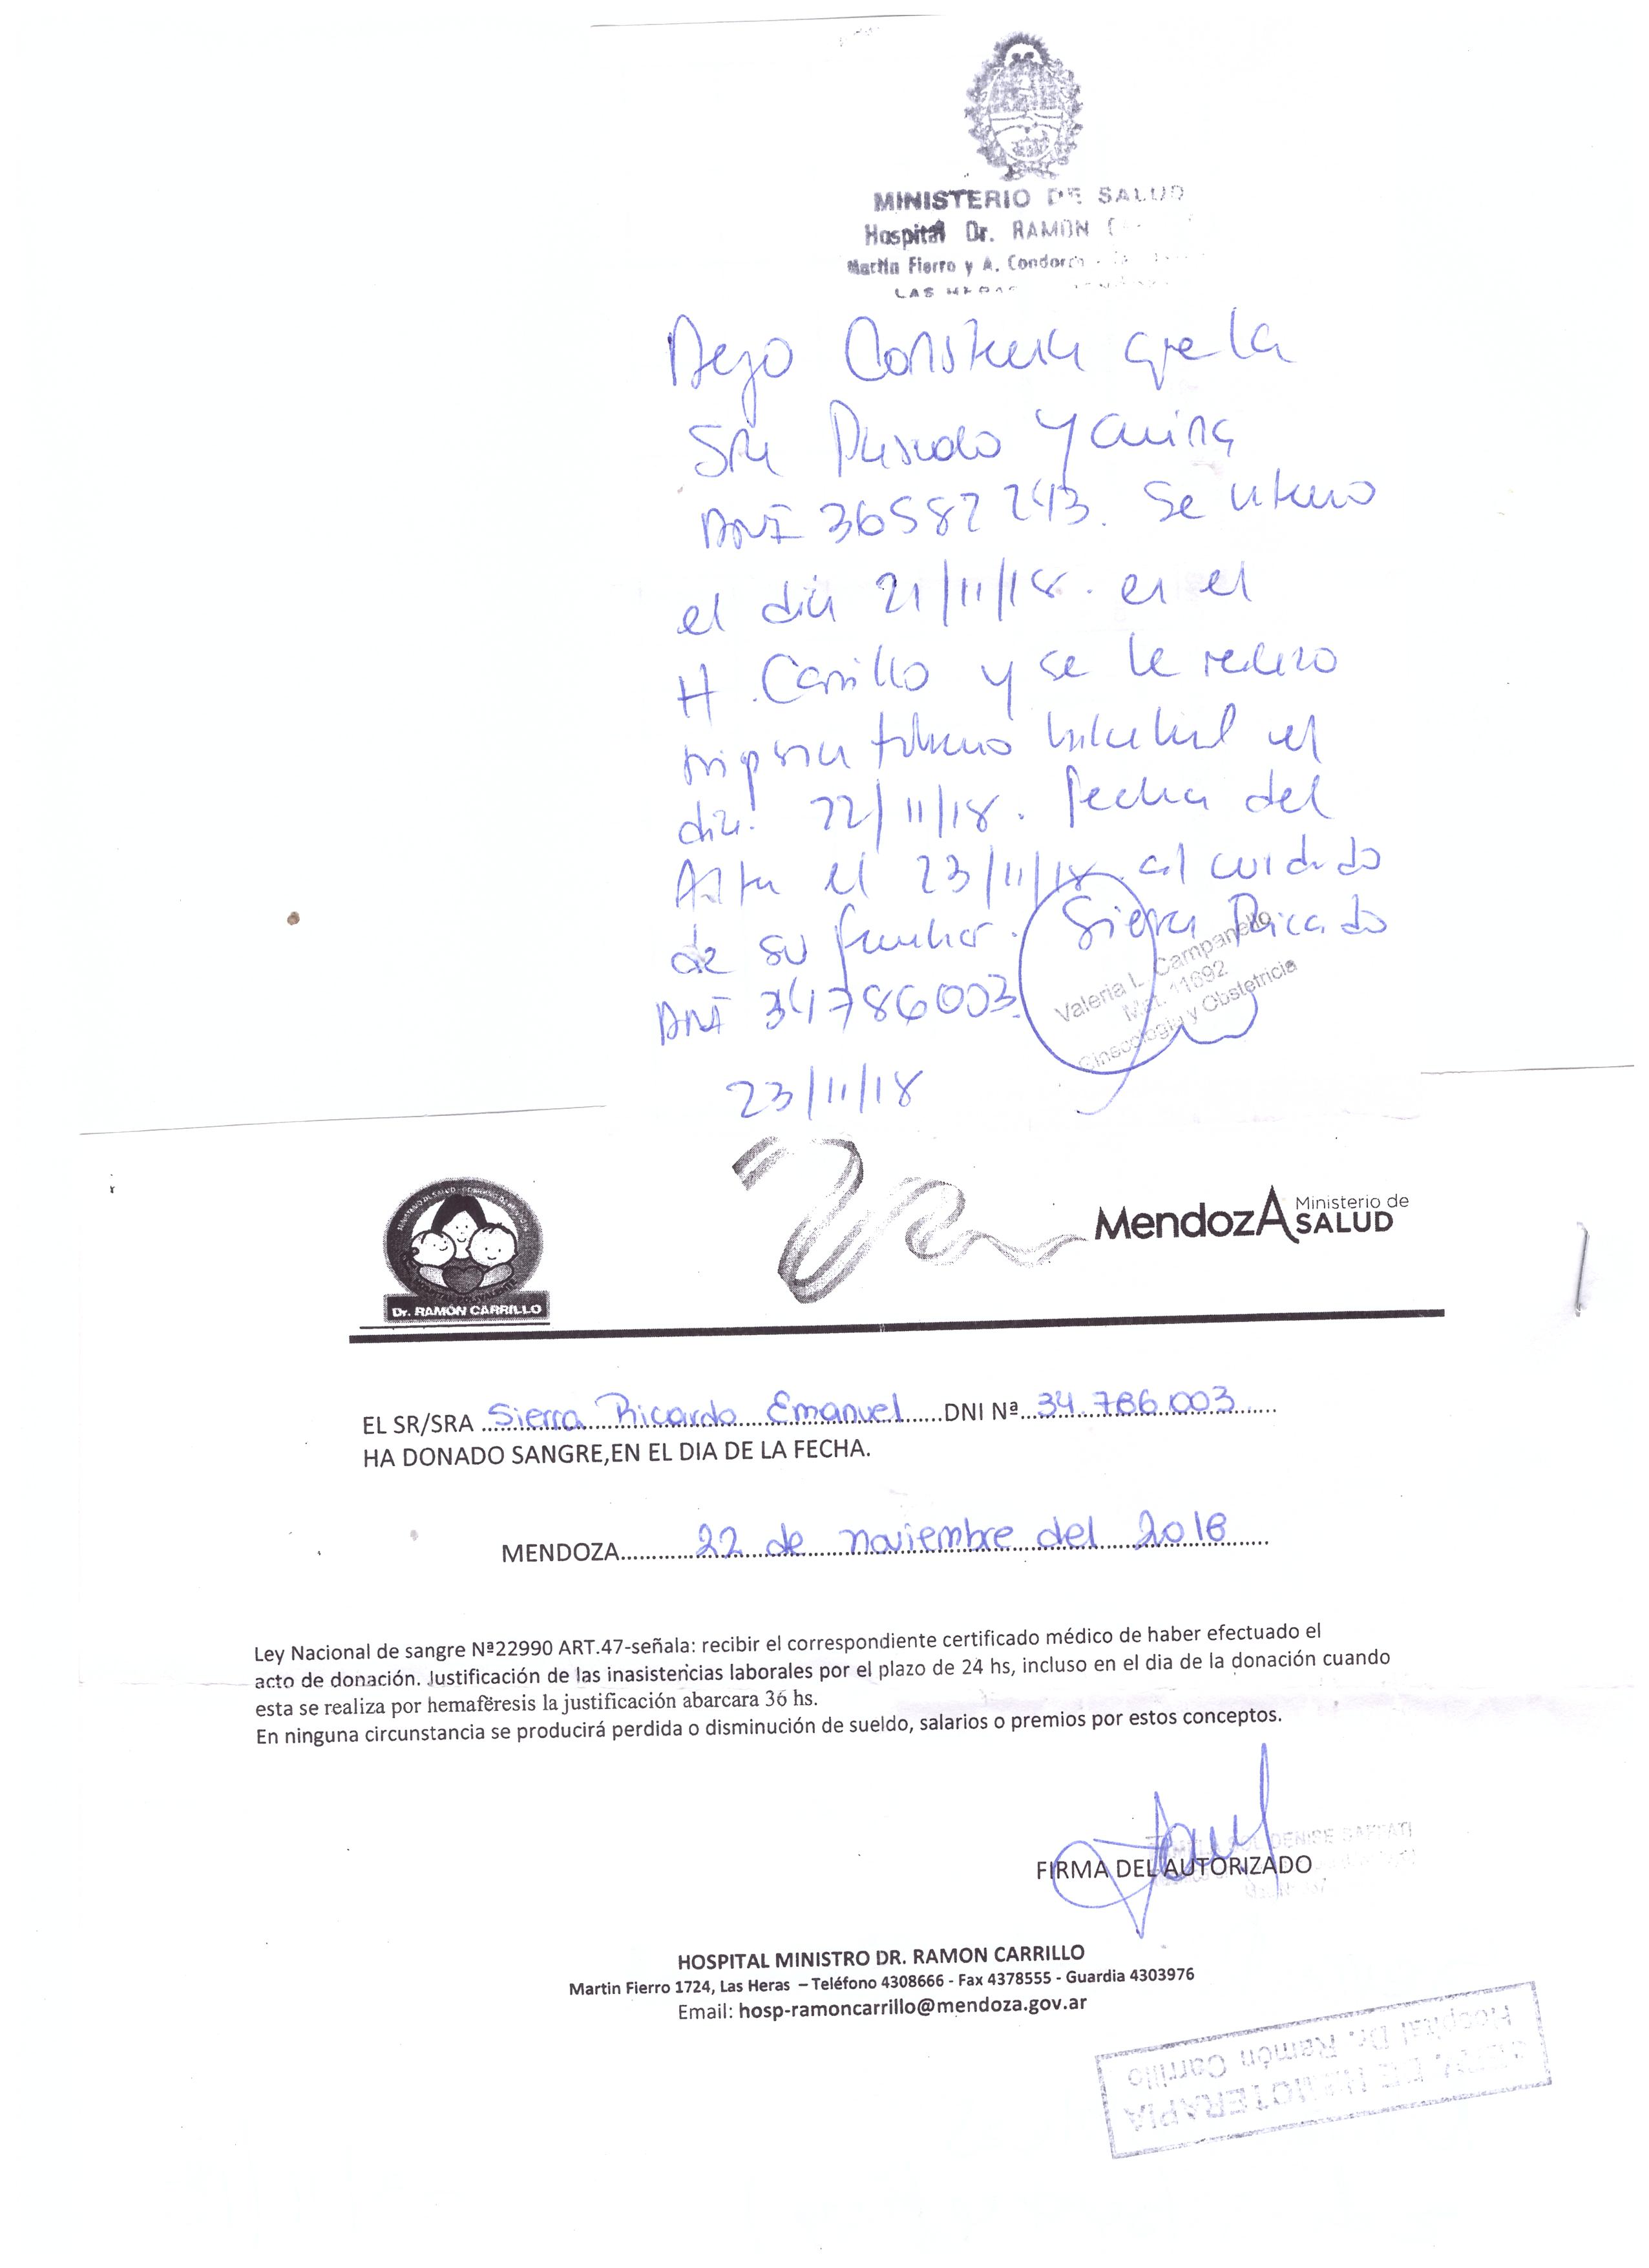 MINISTERIO DE SALUD
Hospital Dr. RAMON
Martin Fierro y A. Condorc
LAS HERAS
Dejo Constancia que la
Sra Yanina
DNI 36587243. Se interno
el dia 21/11/18. en el
H. Carrillo y se le realizo
el
dia. 22/11/18. fecha del
Alta el 23/11/18. al cuidado
de su familiar. Sierra Ricardo
DNI 34786003.
Valeria L. Campanello
Mat. 11692
Ginecología y Obstetricia
23/11/18
Dr. RAMÓN CARRILLO
MendozA Ministerio de SALUD
EL SR/SRA Sierra Ricardo Emanuel DNI Nª 34.786.003
HA DONADO SANGRE,EN EL DIA DE LA FECHA.
MENDOZA 22 de noviembre del 2018
Ley Nacional de sangre Nª22990 ART.47-señala: recibir el correspondiente certificado médico de haber efectuado el
acto de donación. Justificación de las inasistencias laborales por el plazo de 24 hs, incluso en el dia de la donación cuando
esta se realiza por hemaféresis la justificación abarcara 36 hs.
En ninguna circunstancia se producirá perdida o disminución de sueldo, salarios o premios por estos conceptos.
FIRMA DEL AUTORIZADO
HOSPITAL MINISTRO DR. RAMON CARRILLO
Martin Fierro 1724, Las Heras – Teléfono 4308666 - Fax 4378555 - Guardia 4303976
Email: hosp-ramoncarrillo@mendoza.gov.ar
HEMOTERAPIA
Hospital Dr. Ramón Carrillo